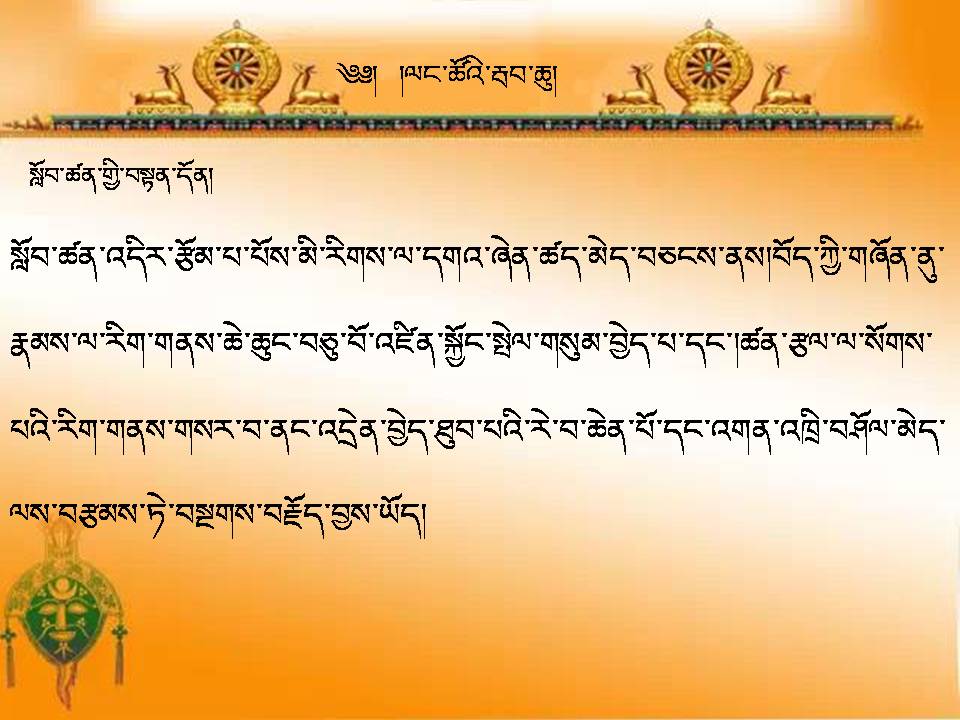 ༄༅། །ལང་ཚོའི་རྦབ་ཆུ།
སློབ་ཚན་གྱི་བསྟན་དོན།
སློབ་ཚན་འདིར་རྩོམ་པ་པོས་མི་རིགས་ལ་དགའ་ཞེན་ཚད་མེད་བཅངས་ནས།བོད་ཀྱི་གཞོན་ནུ་
རྣམས་ལ་རིག་གནས་ཆེ་ཆུང་བཅུ་པོ་འཛིན་སྐྱོང་སྤེལ་གསུམ་བྱེད་པ་དང་།ཚན་རྩལ་ལ་སོགས་
པའི་རིག་གནས་གསར་བ་ནང་འདྲེན་བྱེད་ཐུབ་པའི་རེ་བ་ཆེན་པོ་དང་འགན་འཁྲི་བཤོལ་མེད་
ལས་བརྩམས་ཏེ་བསྔགས་བརྗོད་བྱས་ཡོད།